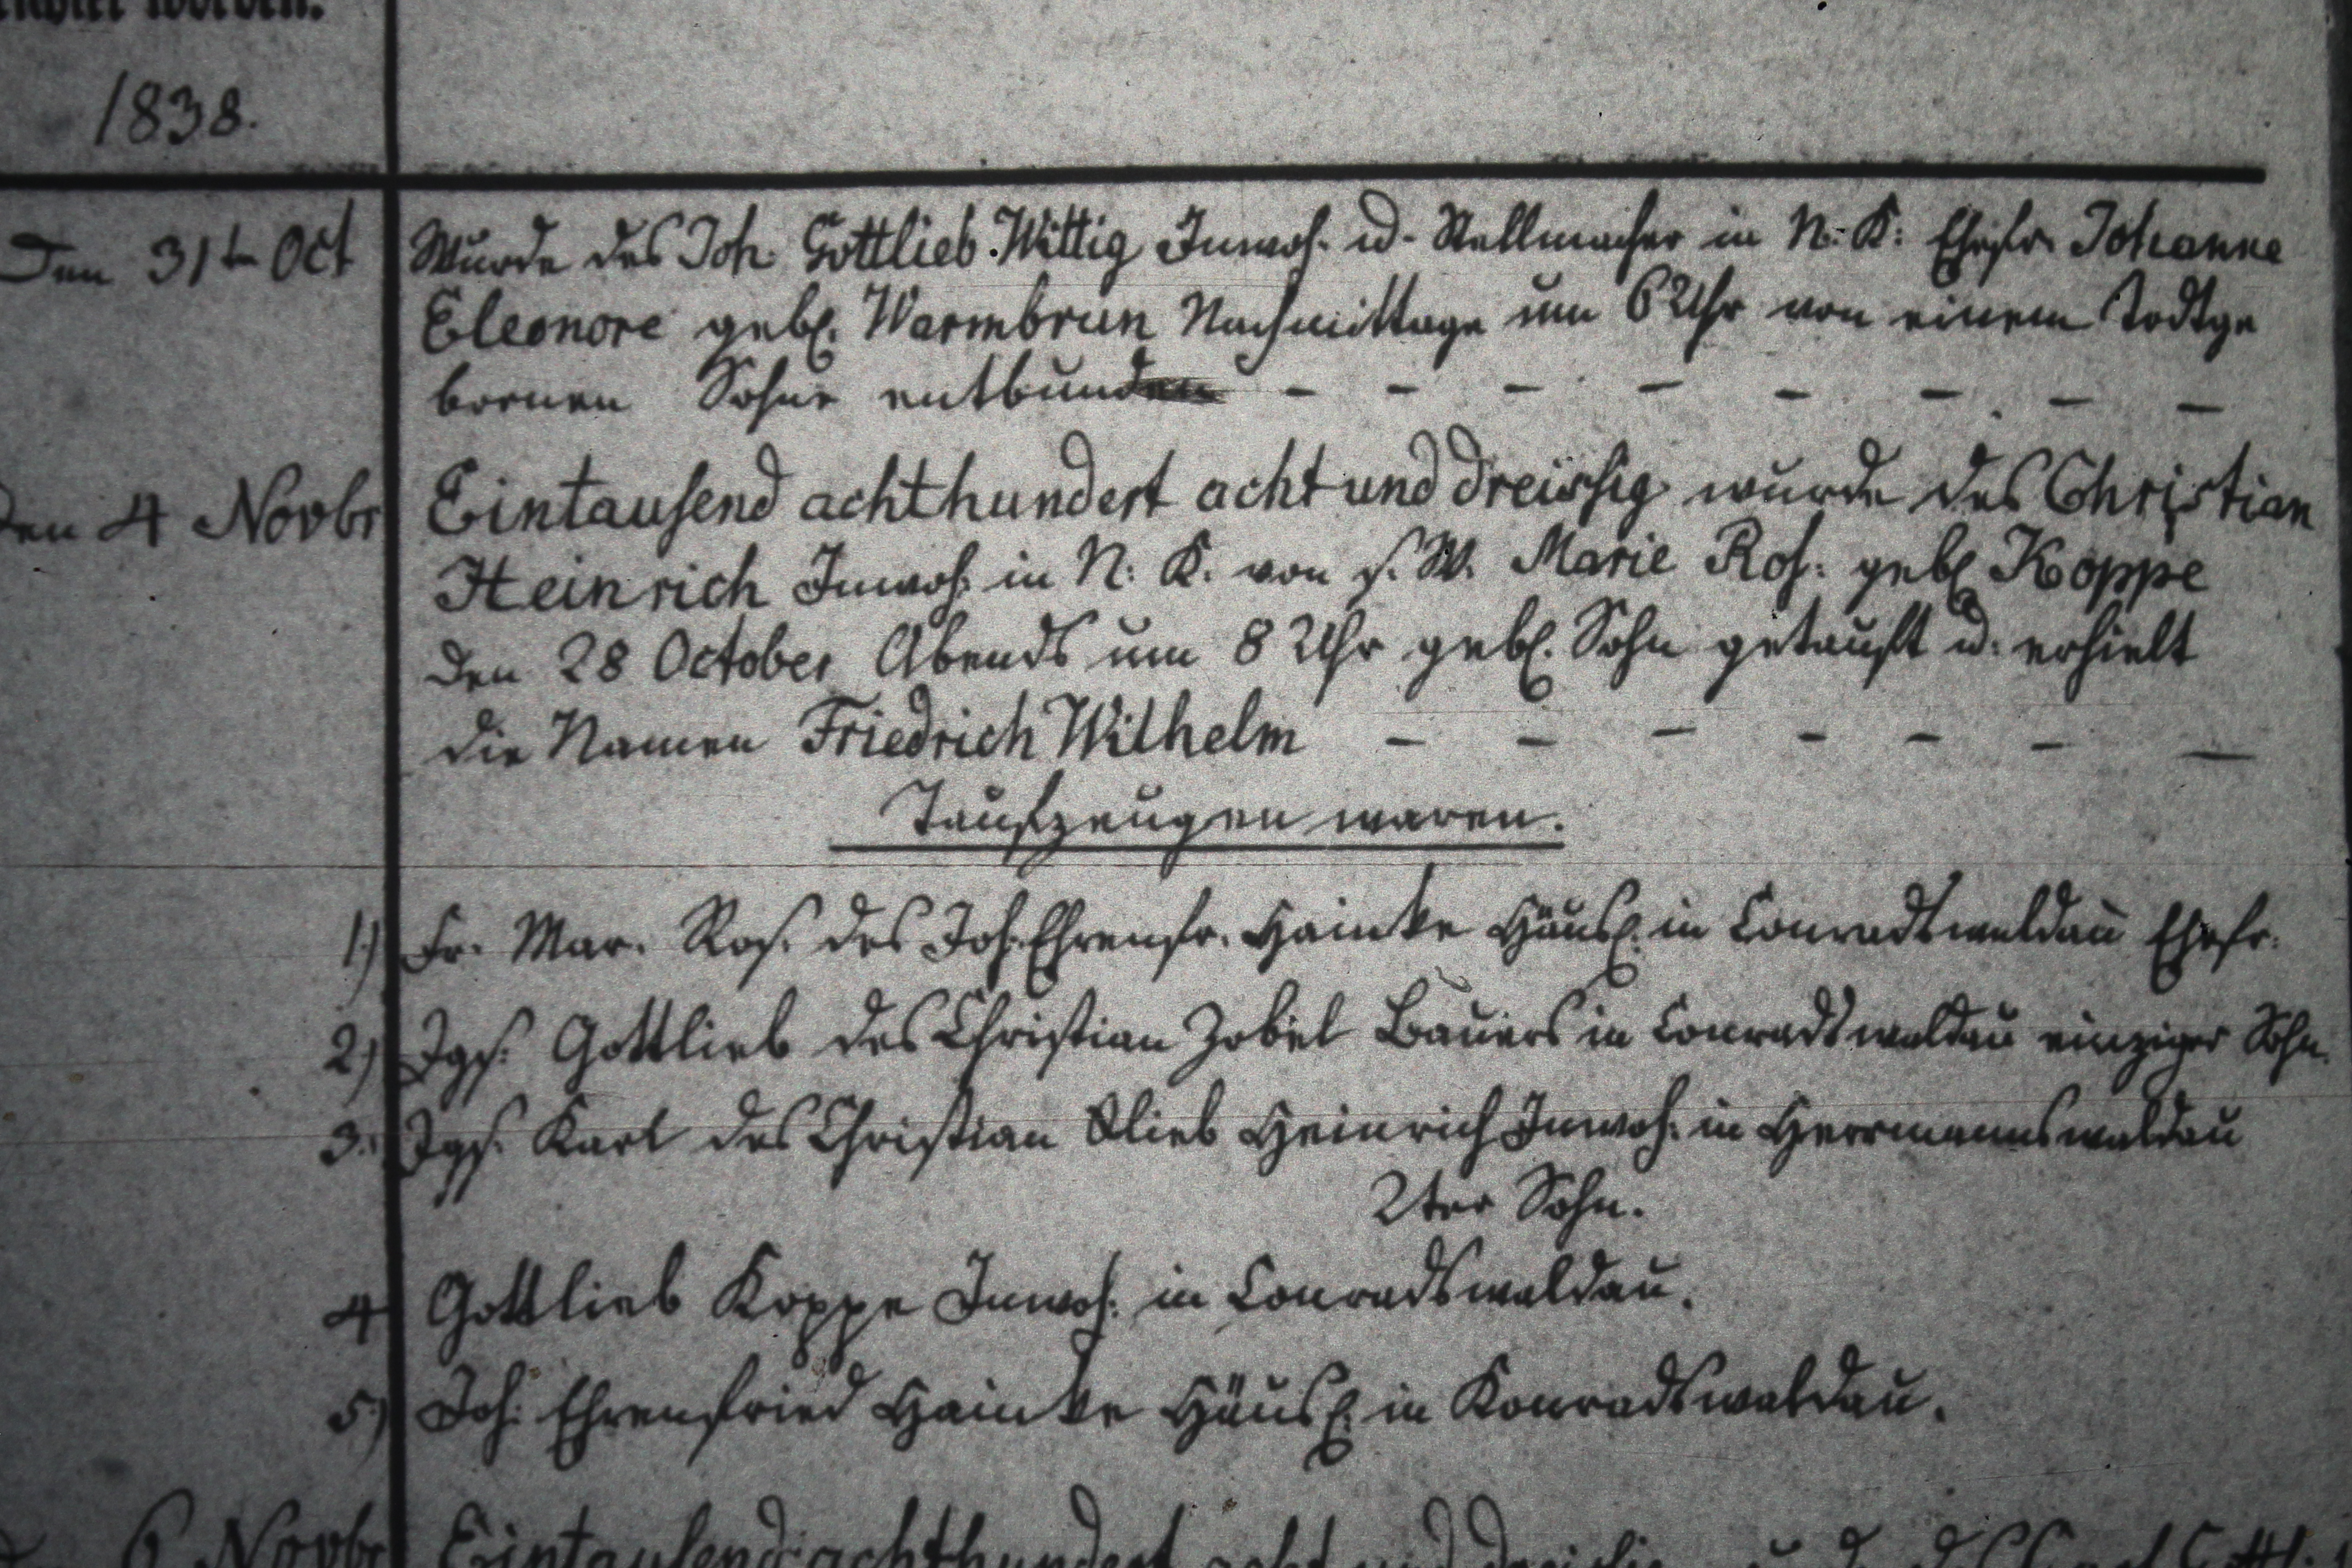 worden.
1838.
Den 31t Oct Wurde des Joh. Gottlieb Wittig Inwoh. u. Stellmacher in N. K: Ehefr. Johanne
Eleonore geb. Warmbrun Nachmittage um 6 Uhr von einem Todtge
bornen Sohne entbunden - - - - - - - -
Den 4 Novbr Eintausend achthundert acht und dreissig wurde des Christian
Heinrich Inwoh: in N: K. von s. W. Marie Ros: geb Koppe
den 28 October Abends um 8 Uhr geb. Sohn getauft u. erhielt
die Namen Friedrich Wilhelm - - - - - - -
Taufzeugen waren.
1) Fr. Mar. Ros. des Joh. Ehrenfr. Hainke Häusl. in Conradswaldau Ehefr.
2) Jgs. Gottlieb des Christian Zobel Bauers in Conradswaldau einziger Sohn.
3. Jgs. Karl des Christian Glieb Heinrich Inwoh: in Herrmannswaldau
2ter Sohn.
4 Gottlieb Koppe Inwoh: in Conradswaldau.
5) Joh: Ehrenfried Hainke Häusl. in Konradswaldau.
6 Novbr Eintausend achthundert acht und dreissig wurde des